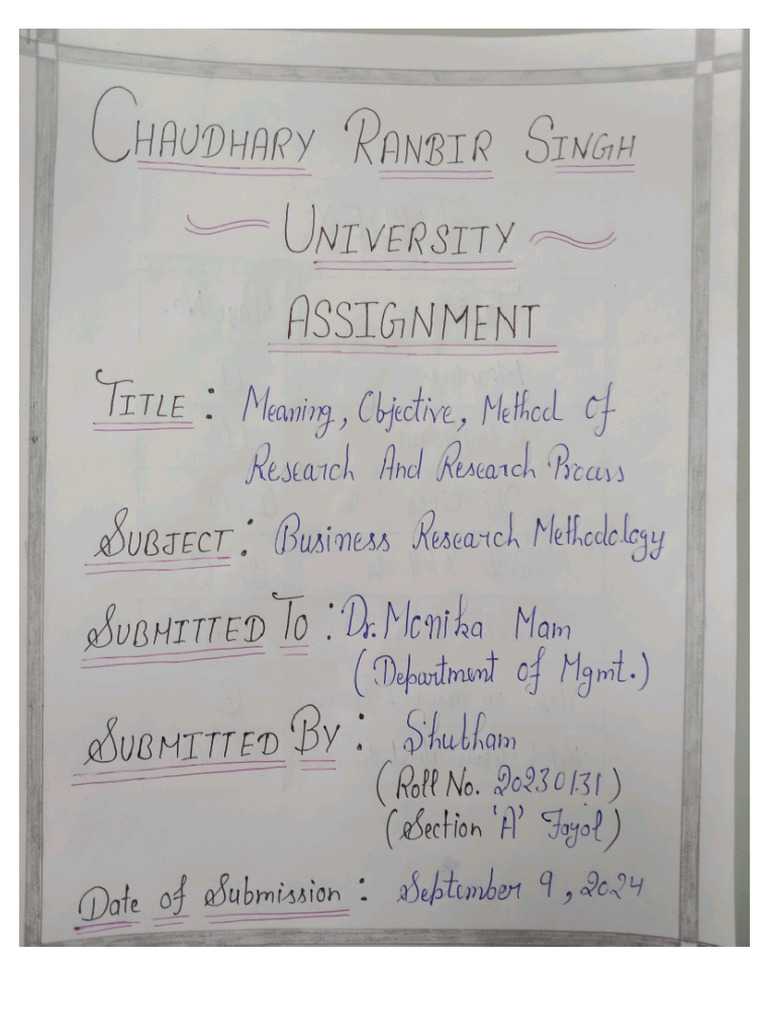 CHAUDHARY RANBIR SINGH
UNIVERSITY
ASSIGNMENT
TITLE : Meaning, Objective, Method of
Research And Research Process
SUBJECT : Business Research Methodology
SUBMITTED TO : Dr. Monika Mam
(Department of Mgmt.)
SUBMITTED BY : Shubham
(Roll No. 20230131)
(Section 'A' Fayol)
Date of Submission : September 9, 2024